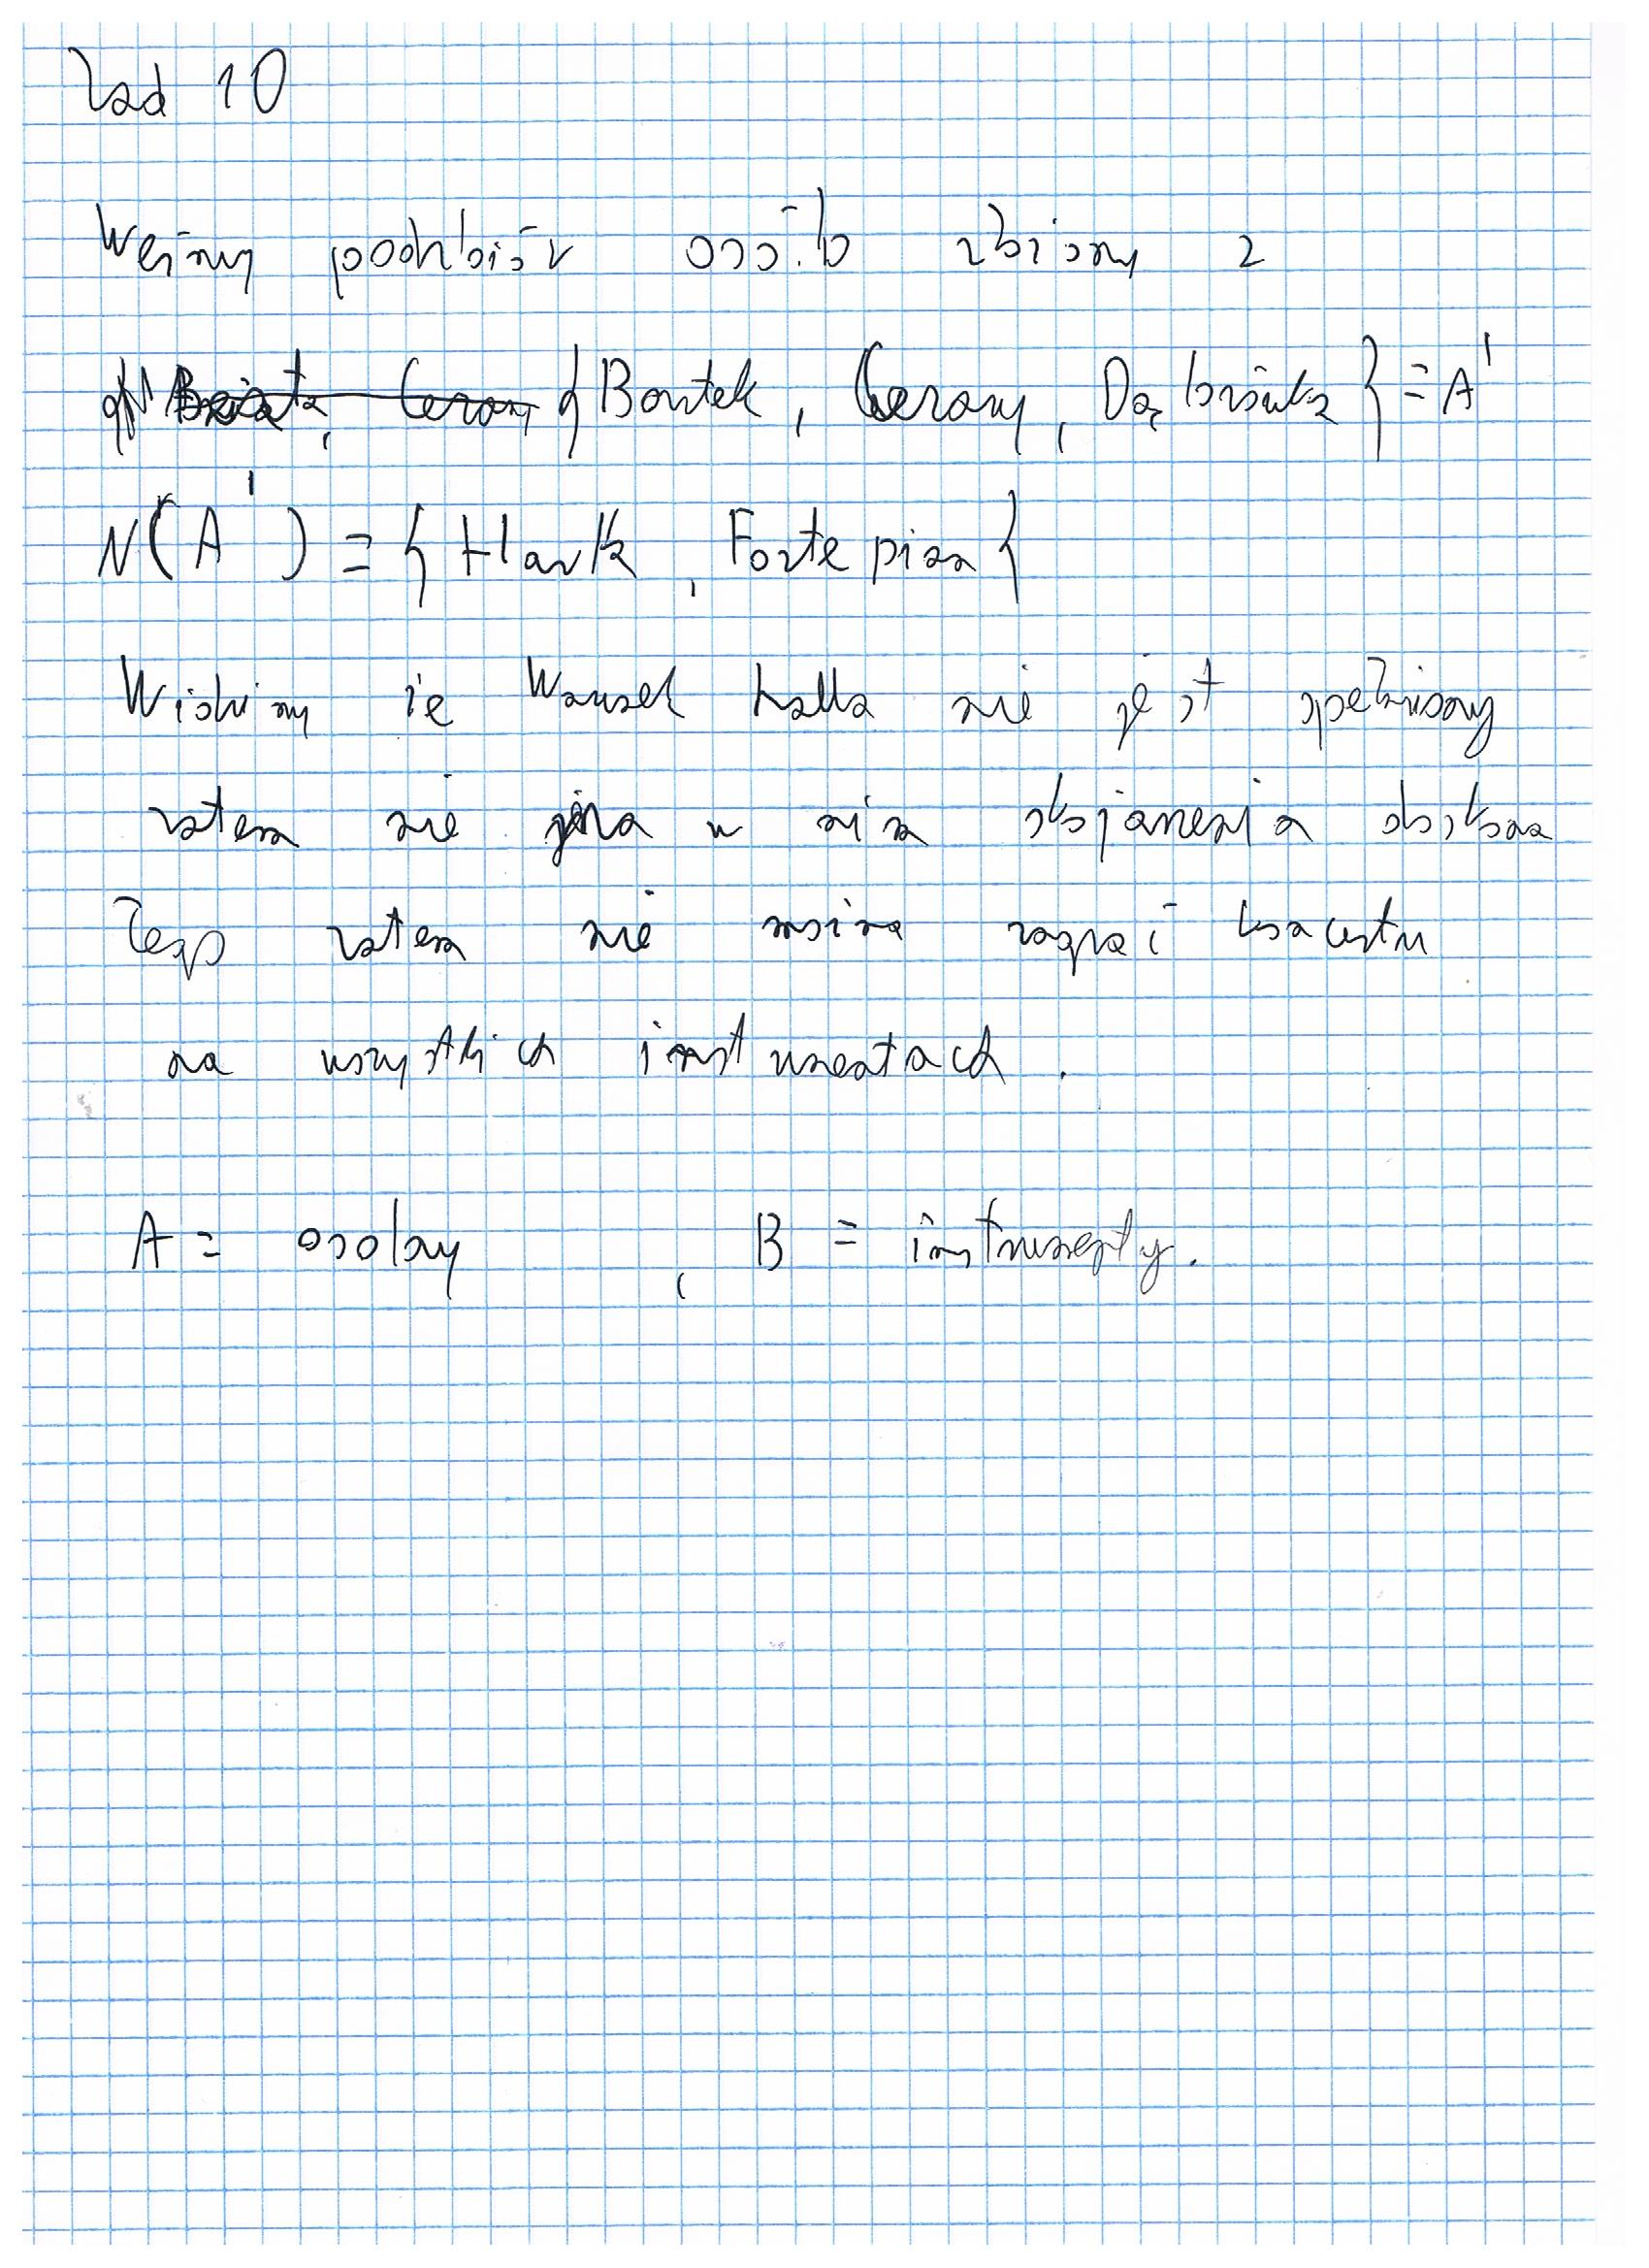 Zad 10
Weźmy podzbiór osób złożony z
{Bartek, Cezary, Dąbrówka} = A'
N(A') = {Harfa, Fortepian}
Widzimy że Warunek halla nie jest spełniony
zatem nie ma w nim skojarzenia doskona
łego zatem nie można zagrać koncertu
na wszystkich instumentach.
A = osoby, B = instrumenty.